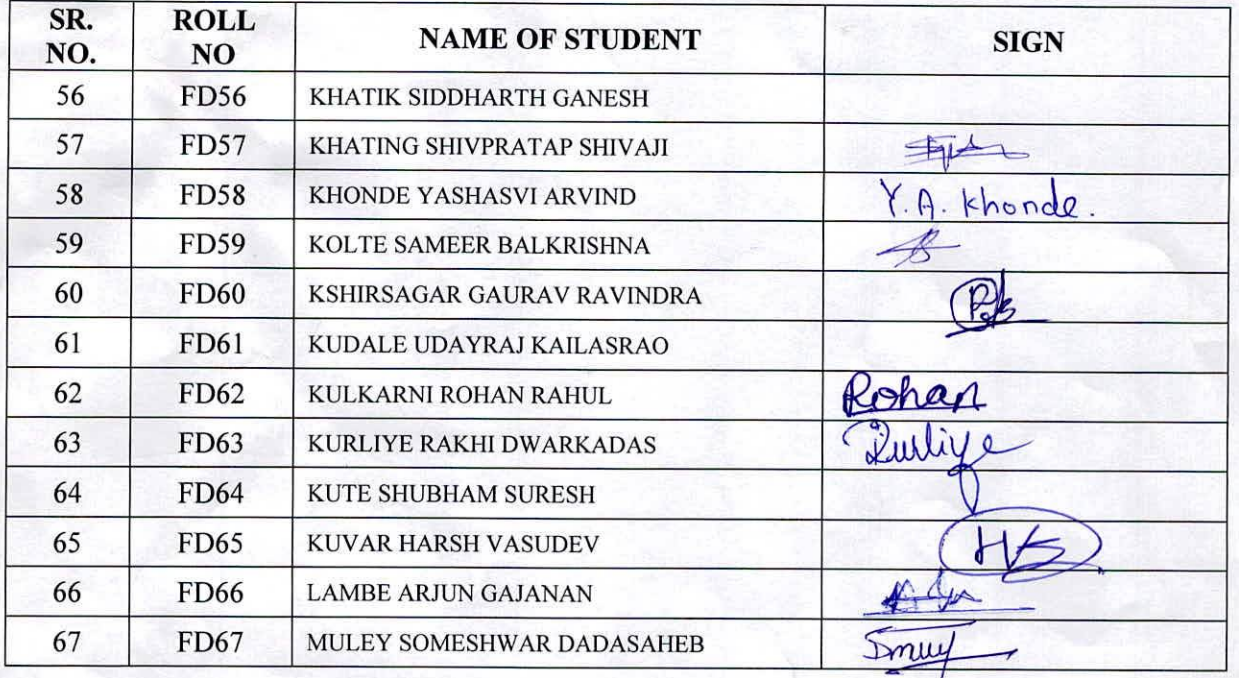 SR. NO. ROLL NO NAME OF STUDENT SIGN
56 FD56 KHATIK SIDDHARTH GANESH
57 FD57 KHATING SHIVPRATAP SHIVAJI
58 FD58 KHONDE YASHASVI ARVIND Y. A. Khonde.
59 FD59 KOLTE SAMEER BALKRISHNA
60 FD60 KSHIRSAGAR GAURAV RAVINDRA
61 FD61 KUDALE UDAYRAJ KAILASRAO
62 FD62 KULKARNI ROHAN RAHUL Rohan
63 FD63 KURLIYE RAKHI DWARKADAS Rurliye
64 FD64 KUTE SHUBHAM SURESH
65 FD65 KUVAR HARSH VASUDEV HVS
66 FD66 LAMBE ARJUN GAJANAN
67 FD67 MULEY SOMESHWAR DADASAHEB